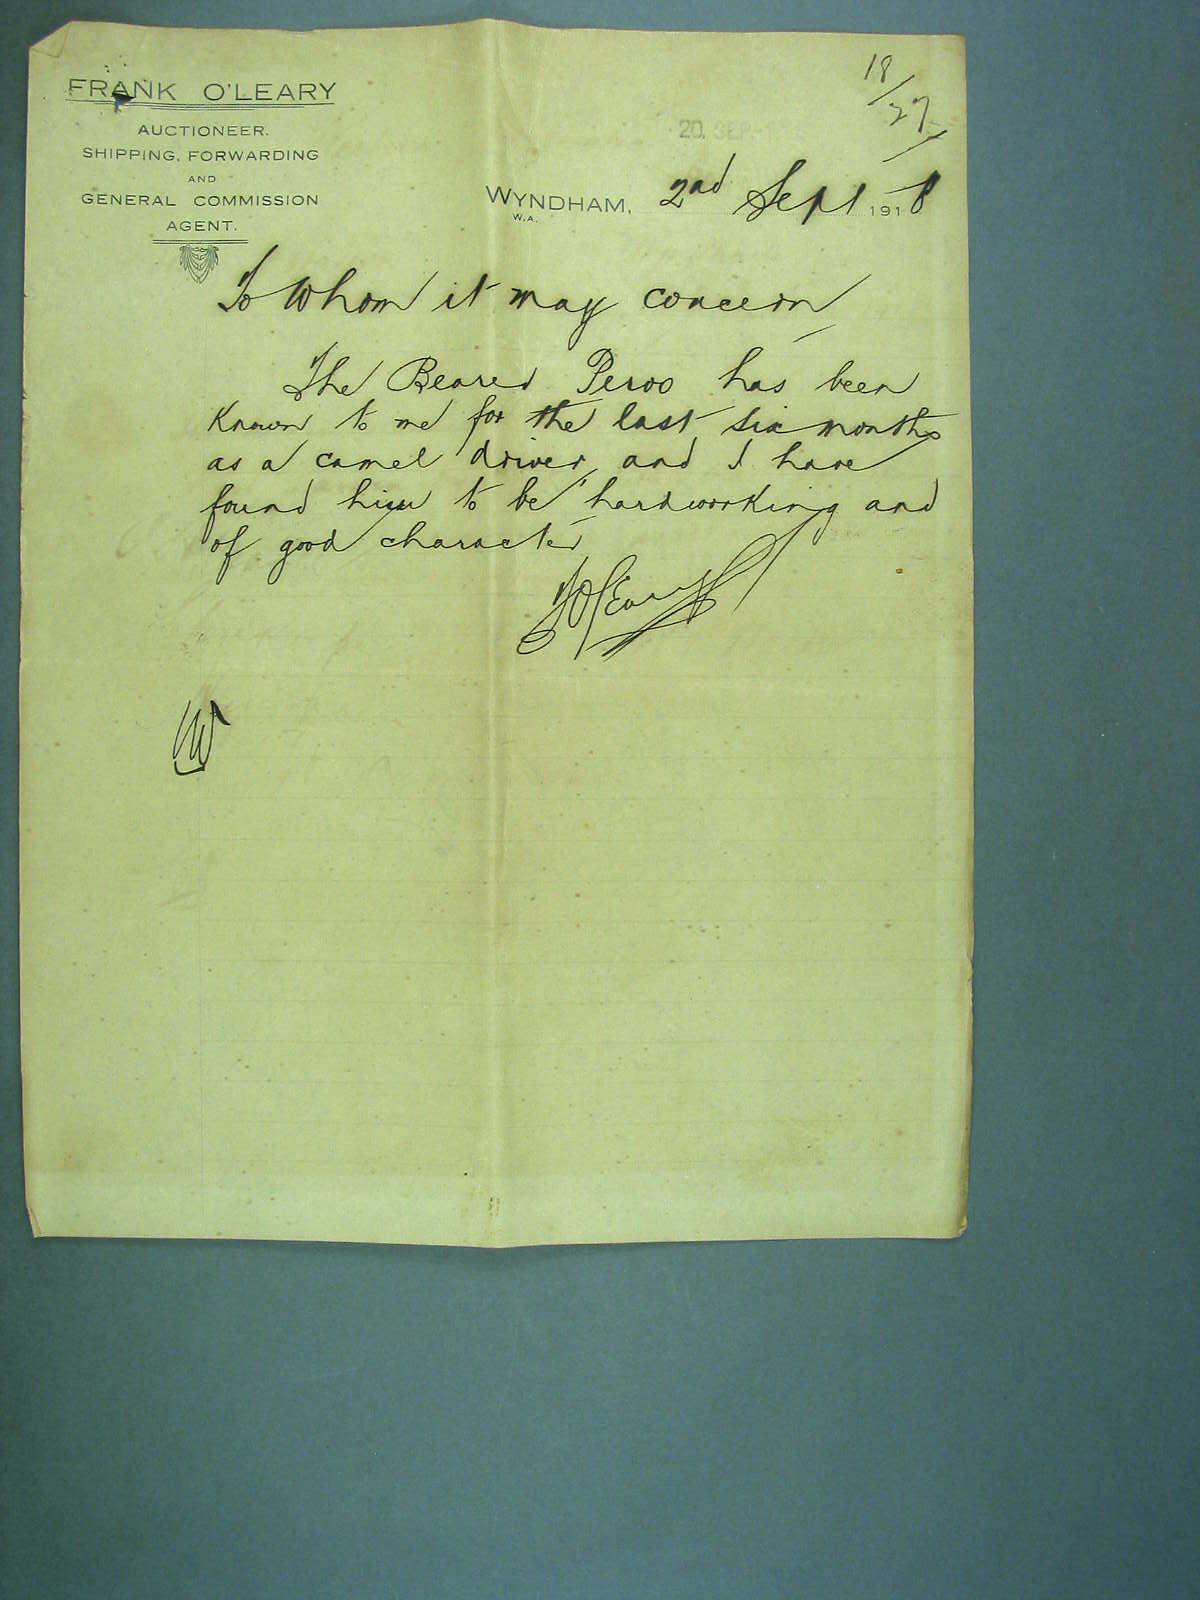 FRANK O'LEARY
AUCTIONEER.
SHIPPING, FORWARDING
AND
GENERAL COMMISSION
AGENT.
18/27
20. SEP. 
WYNDHAM, 2nd Sept 1918
W.A.
To Whom it may concern
The Bearer Peroo has been
Known to me for the last six months
as a camel driver and I have
found him to be hardworking and
of good character
FO'Leary